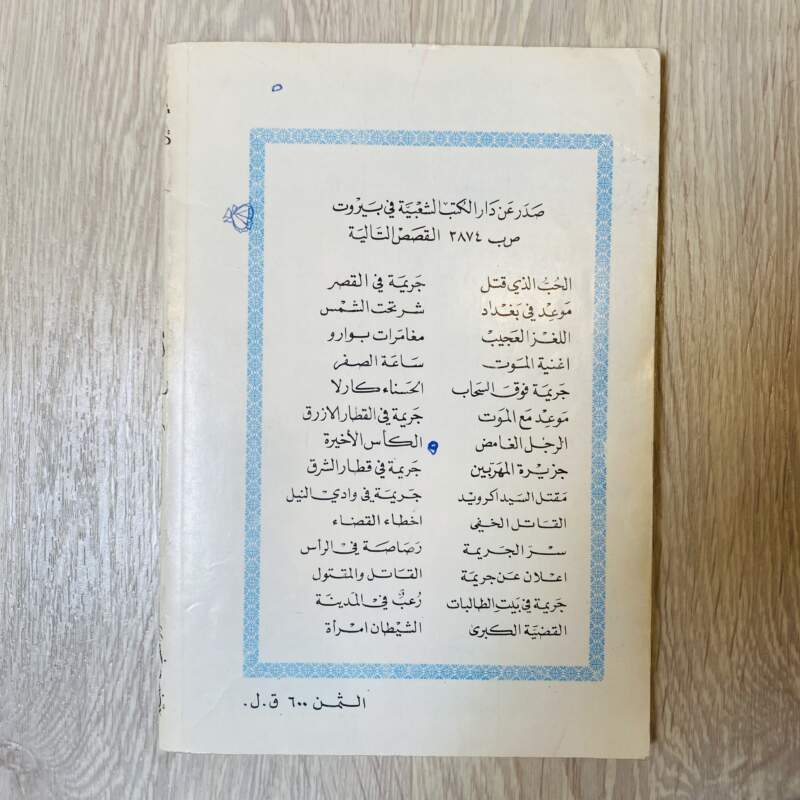 صدر عن دار الكتب الشعبية في بيروت
ص ب ٣٨٧٤ القصص التالية
الحب الذي قتل
موعد في بغداد
اللغز العجيب
اغنية الموت
جريمة فوق السحاب
موعد مع الموت
الرجل الغامض
جزيرة المهربين
مقتل السيد اكرويد
القاتل الخفي
سر الجريمة
اعلان عن جريمة
جريمة في بيت الطالبات
القضية الكبرى
جريمة في القصر
شر تحت الشمس
مغامرات بوارو
ساعة الصفر
الحسناء كارلا
جريمة في القطار الازرق
الكأس الأخيرة
جريمة في قطار الشرق
جريمة في وادي النيل
اخطاء القضاء
رصاصة في الرأس
القاتل والمقتول
رعب في المدينة
الشيطان امرأة
الثمن ٦٠٠ ق.ل.